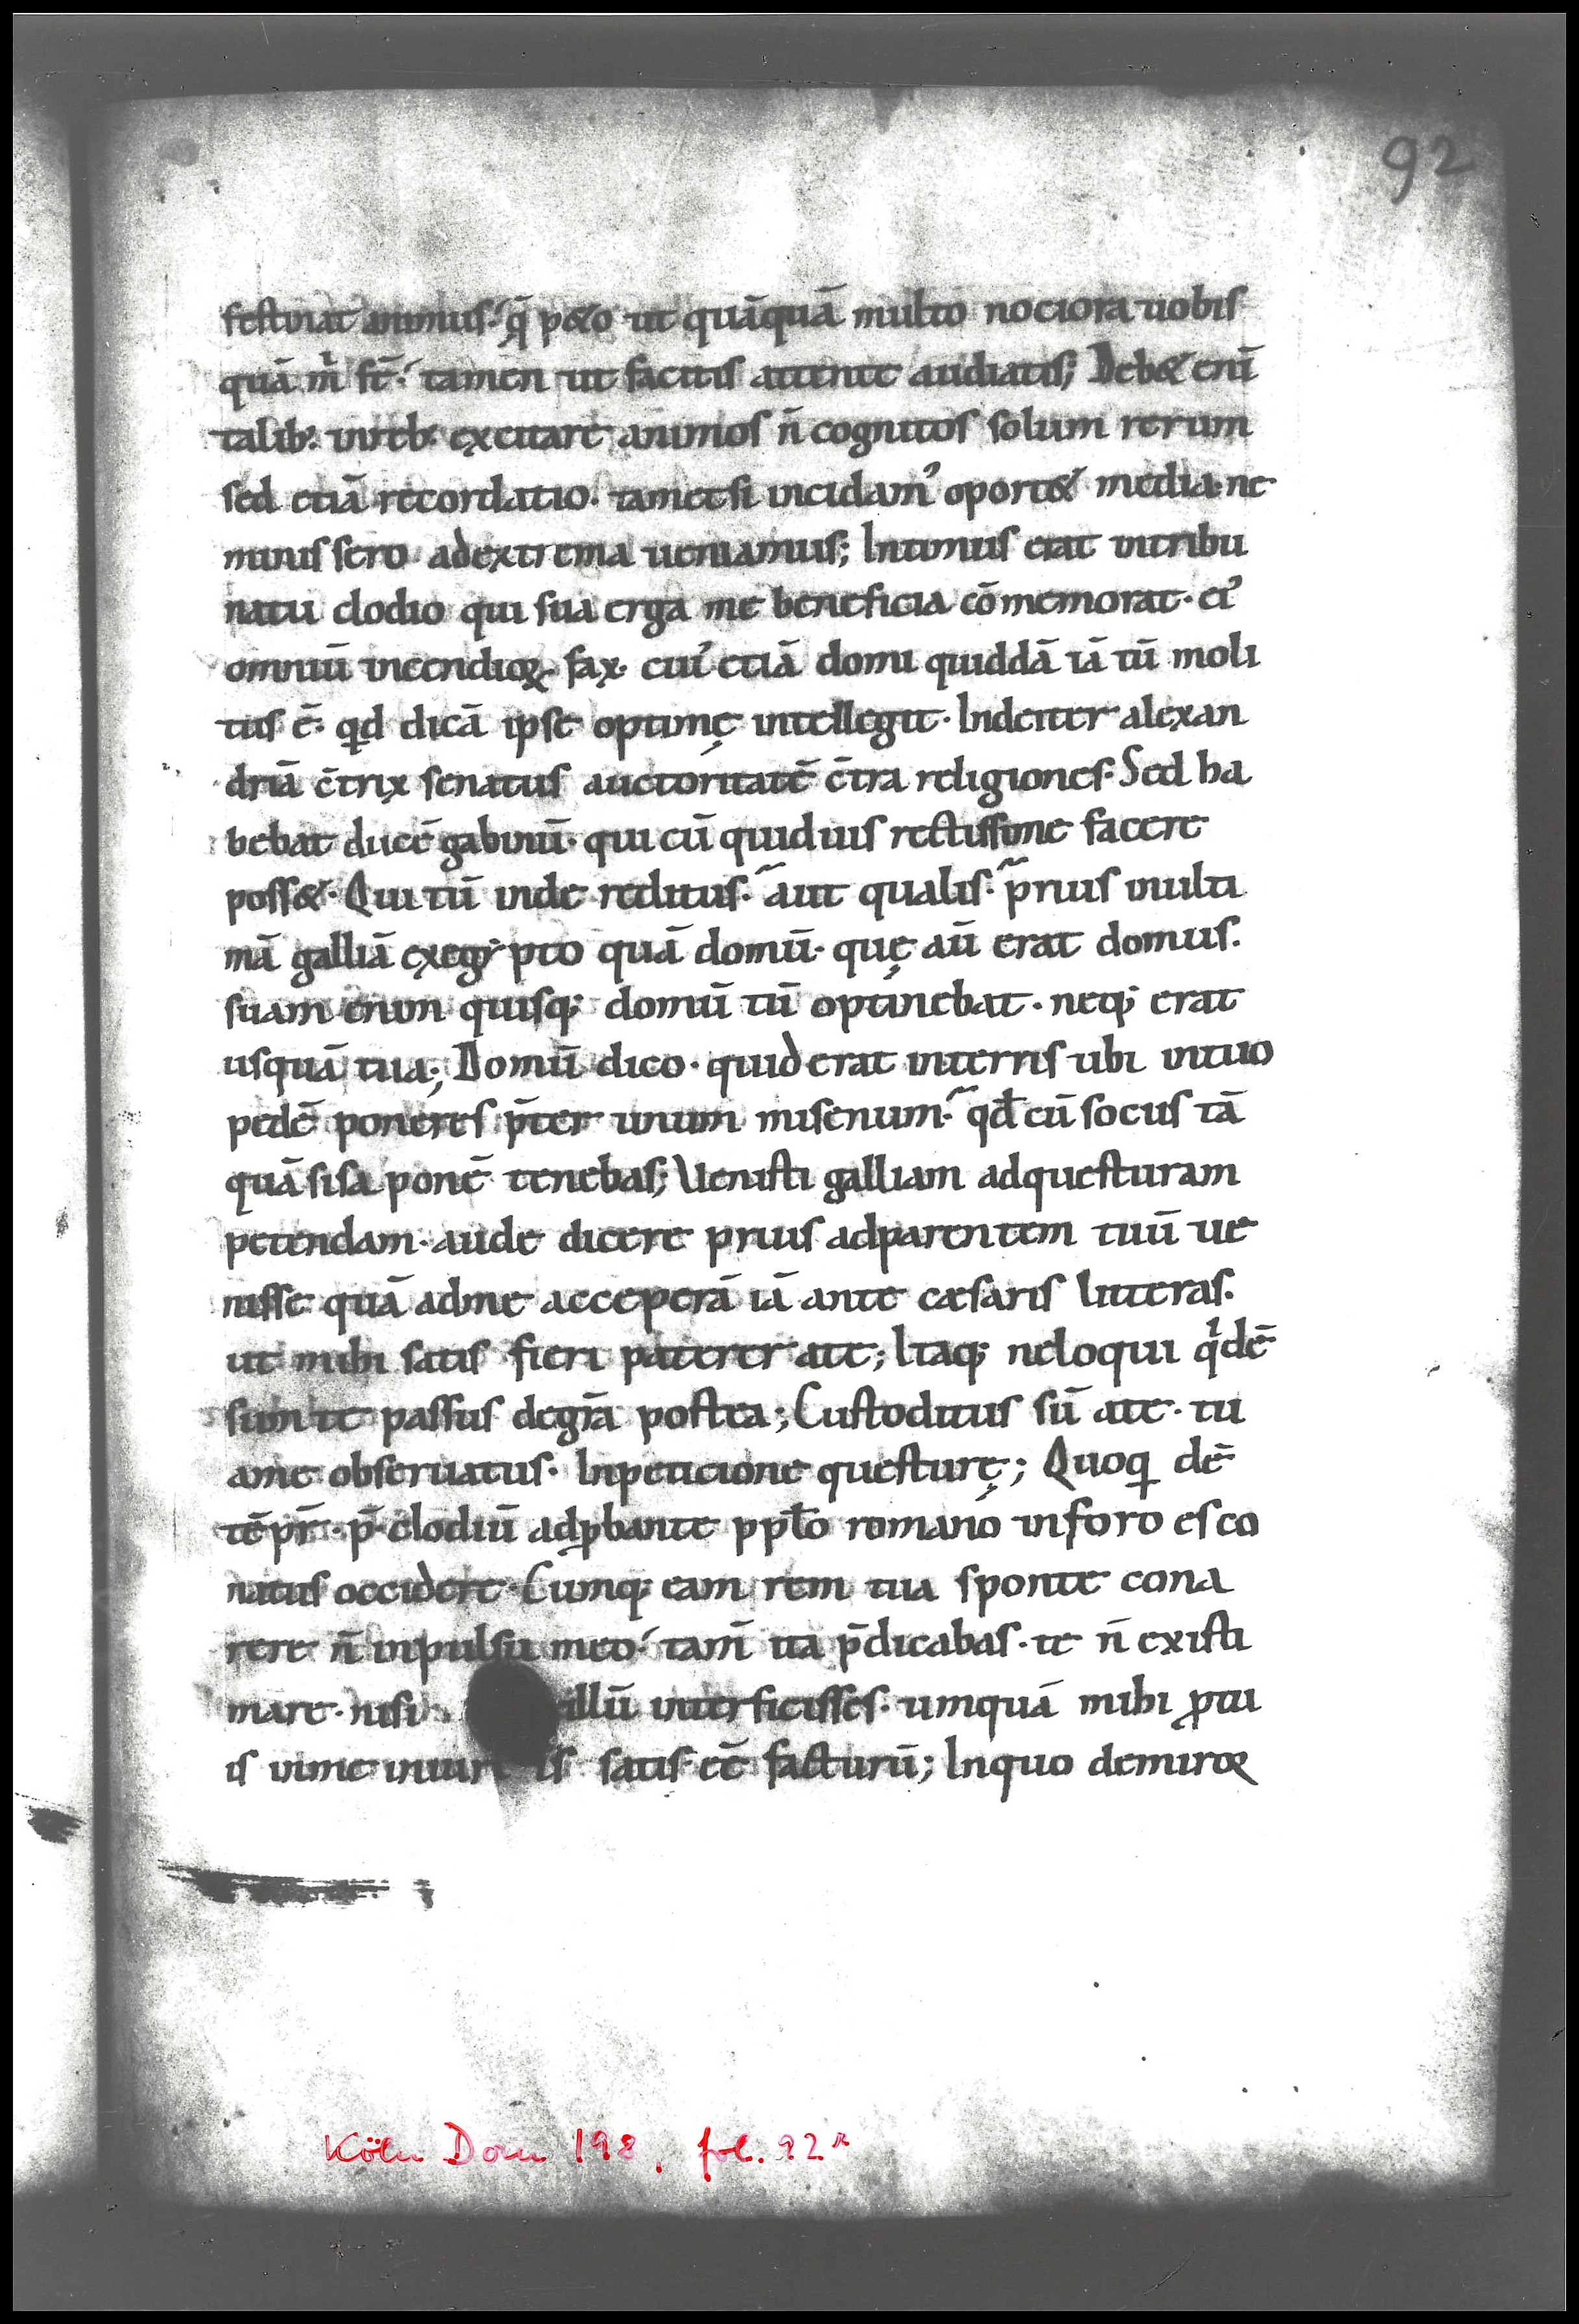 92
festinat animus. q̄ p&o ut quāquā multo nociora uobis
quā m̄ st̄. tamen ut facitis attente audiatis; Deb& enī
talib; inreb; excitare animos n̄ cognitos solum rerum
sed etiā recordatio. tametsi incidam' oport& media. ne
minis sero adextrema ueniamus; Intimus erat intribu
natu clodio qui sua erga me beneficia cōmemorat. ei'
omniū incendioꝝ. fax. cui' etiā domi quiddā iā tū moli
tus ē. qd dicā ipse optimę intellegit. Indeiter alexan
driā c̄trix senatus auctoritatē c̄tra religiones. Sed ha
bebat ducē gabiniū. qui cū quiduis rectissime facere
poss&. Qui tū inde reditus. aut qualis. prius inulti
mā galliā exegypto quā domū. quę aū erat domus.
suam enim quisq; domū tū optinebat. neq; erat
usquā tua; Domū dico. quid erat interris ubi intuo
pedē poneres p̄ter unum misenum. qđ cū socus tā
quā sisa ponē tenebas; Uenisti galliam adquesturam
petendam. aude dicere prius adparentem tuū ue
nisse quā adme acceperā iā ante cæsaris litteras.
ut mihi satis fieri paterer ate; Itaq; neloqui qͥdē
sum te passus degr̄a postea; Custoditus sū ate. tu
ame obseruatus. Inpeticione questurę; Quoq dē
tēpr̄. p̄. clodiū adꝓbante ppl̄o romano inforo es co
natus occidere. Cumq; eam rem tua sponte cona
rere n̄ inpulsu meo. tam̄ ita p̄dicabas. te n̄ existi
mare. nisi illū interficisses. umquā mihi ꝓtu
is inme iniuriis satis eē facturū; Inquo demiror
Köln Dom 198, fol. 92ʳ